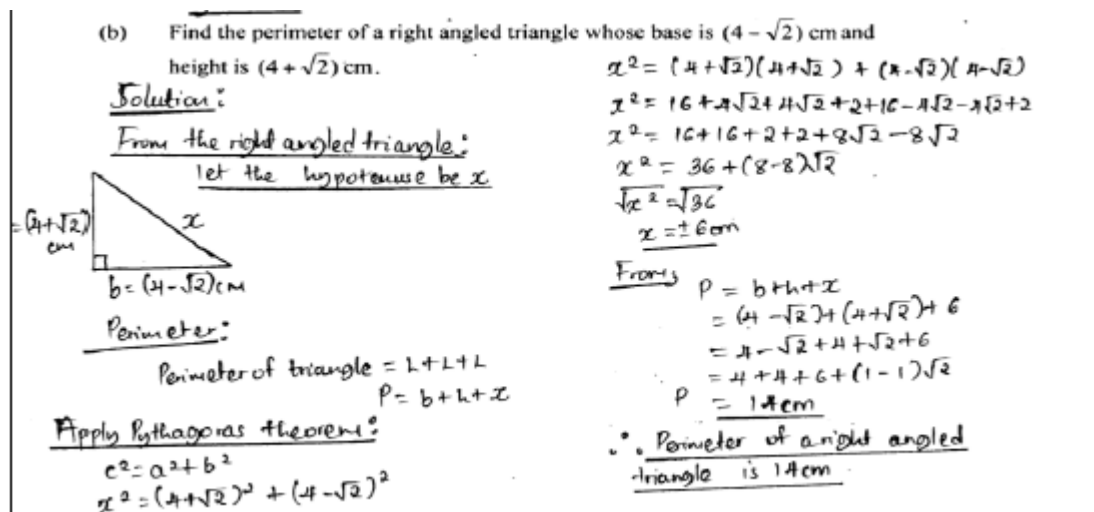 (b) Find the perimeter of a right angled triangle whose base is (4 – √2) cm and
height is (4 + √2) cm.
Solution:
From the right angled triangle:
let the hypotenuse be x
= (4+√2)
cm
x
b = (4-√2)cm
Perimeter:
Perimeter of triangle = L+L+L
P = b+h+x
Apply Pythagoras theorem:
c² = a² + b²
x² = (4+√2)² + (4-√2)²
x² = (4+√2)(4+√2) + (4-√2)(4-√2)
x² = 16+4√2+4√2+2+16-4√2-4√2+2
x² = 16+16+2+2+8√2-8√2
x² = 36+(8-8)√2
√x² = √36
x = ±6cm
From;
P = b+h+x
= (4-√2)+(4+√2)+6
= 4-√2+4+√2+6
= 4+4+6+(1-1)√2
P = 14cm
∴ Perimeter of a right angled
triangle is 14cm